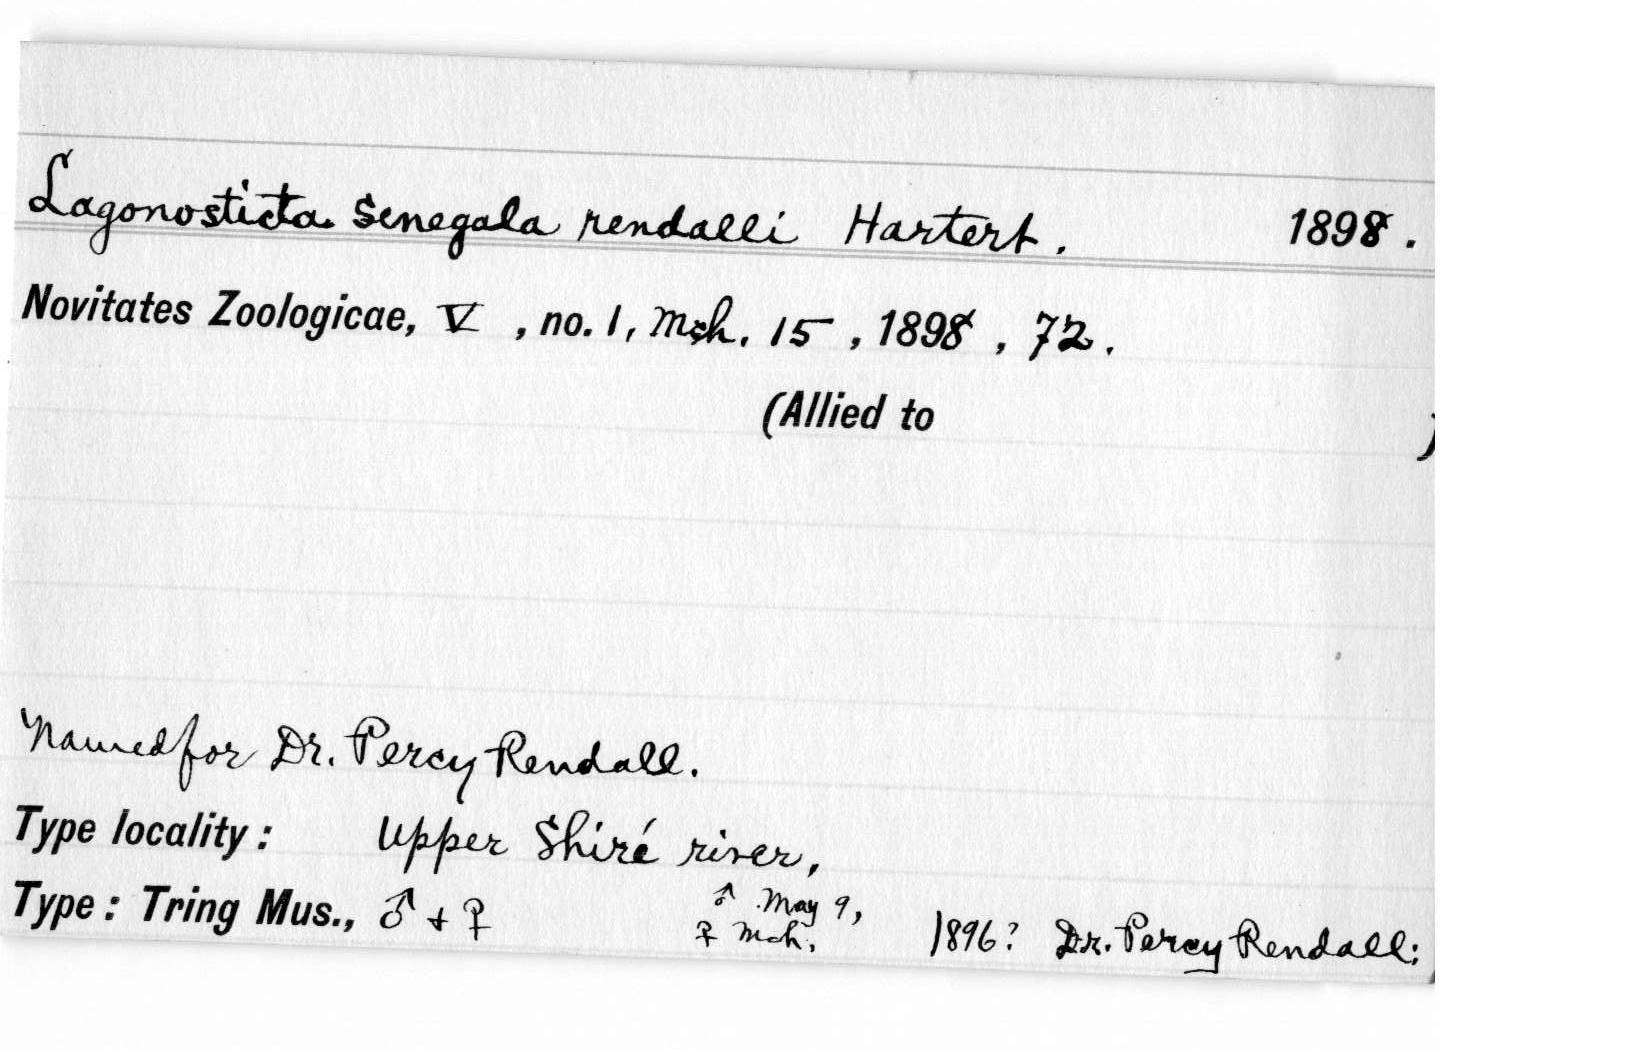 Lagonosticta senegala rendalli Hartert. 1898.
Novitates Zoologicae, V, no. 1, Mch. 15, 1898, 72.
(Allied to )
Named for Dr. Percy Rendall.
Type locality: Upper Shiré river,
Type: Tring Mus., ♂ + ♀ ♂ May 9, ♀ Mch. 1896? Dr. Percy Rendall;